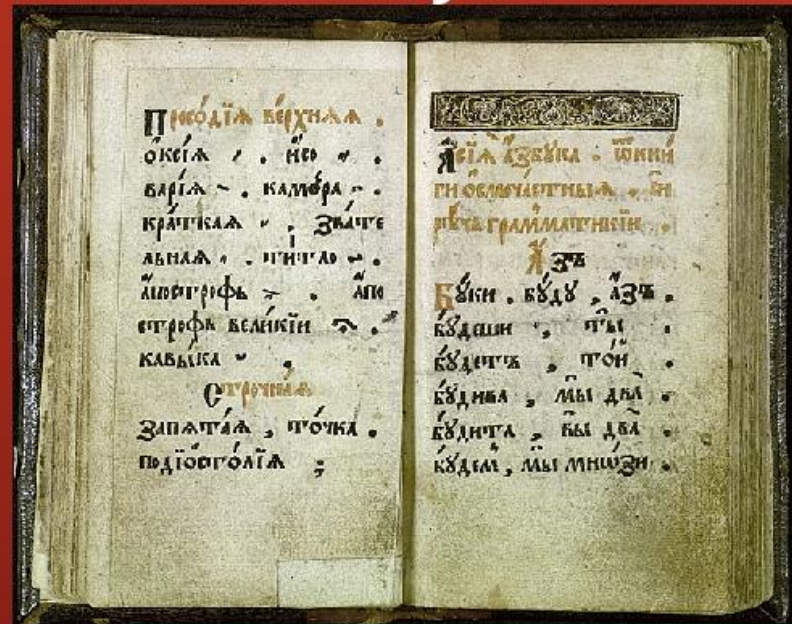 Просѡ́дїѧ ве́рхнѧѧ .
о҆ксі́ѧ ́ . и҆́со ҆ .
варі́ѧ ̀ . камо́ра ̑ .
кра́ткаѧ ̆ . Зва́те
льнаѧ ҆ . ти́тло ҃ .
а҆по́строфъ . а҆по
строфъ вели́кїи .
кавы́ка .
Стро́чнаѧ
Запѧта́ѧ , то́чка .
подїѡсто́лїѧ ;
А҆сїѧ̀ а҆́збꙋка . ѿ кни
ги ѻ҆смоча́стныѧ . си
рѣ́чь грамма́тикїи .
А҆́зъ
Бꙋ́ки . бꙋ́дꙋ , а҆́зъ .
бꙋ́деши , ты̀ .
бꙋ́детъ , то́й .
бꙋ́дива , мы̀ два̀ .
бꙋ́дита , вы̀ два̀ .
бꙋ́дем , мы̀ мно́зи .